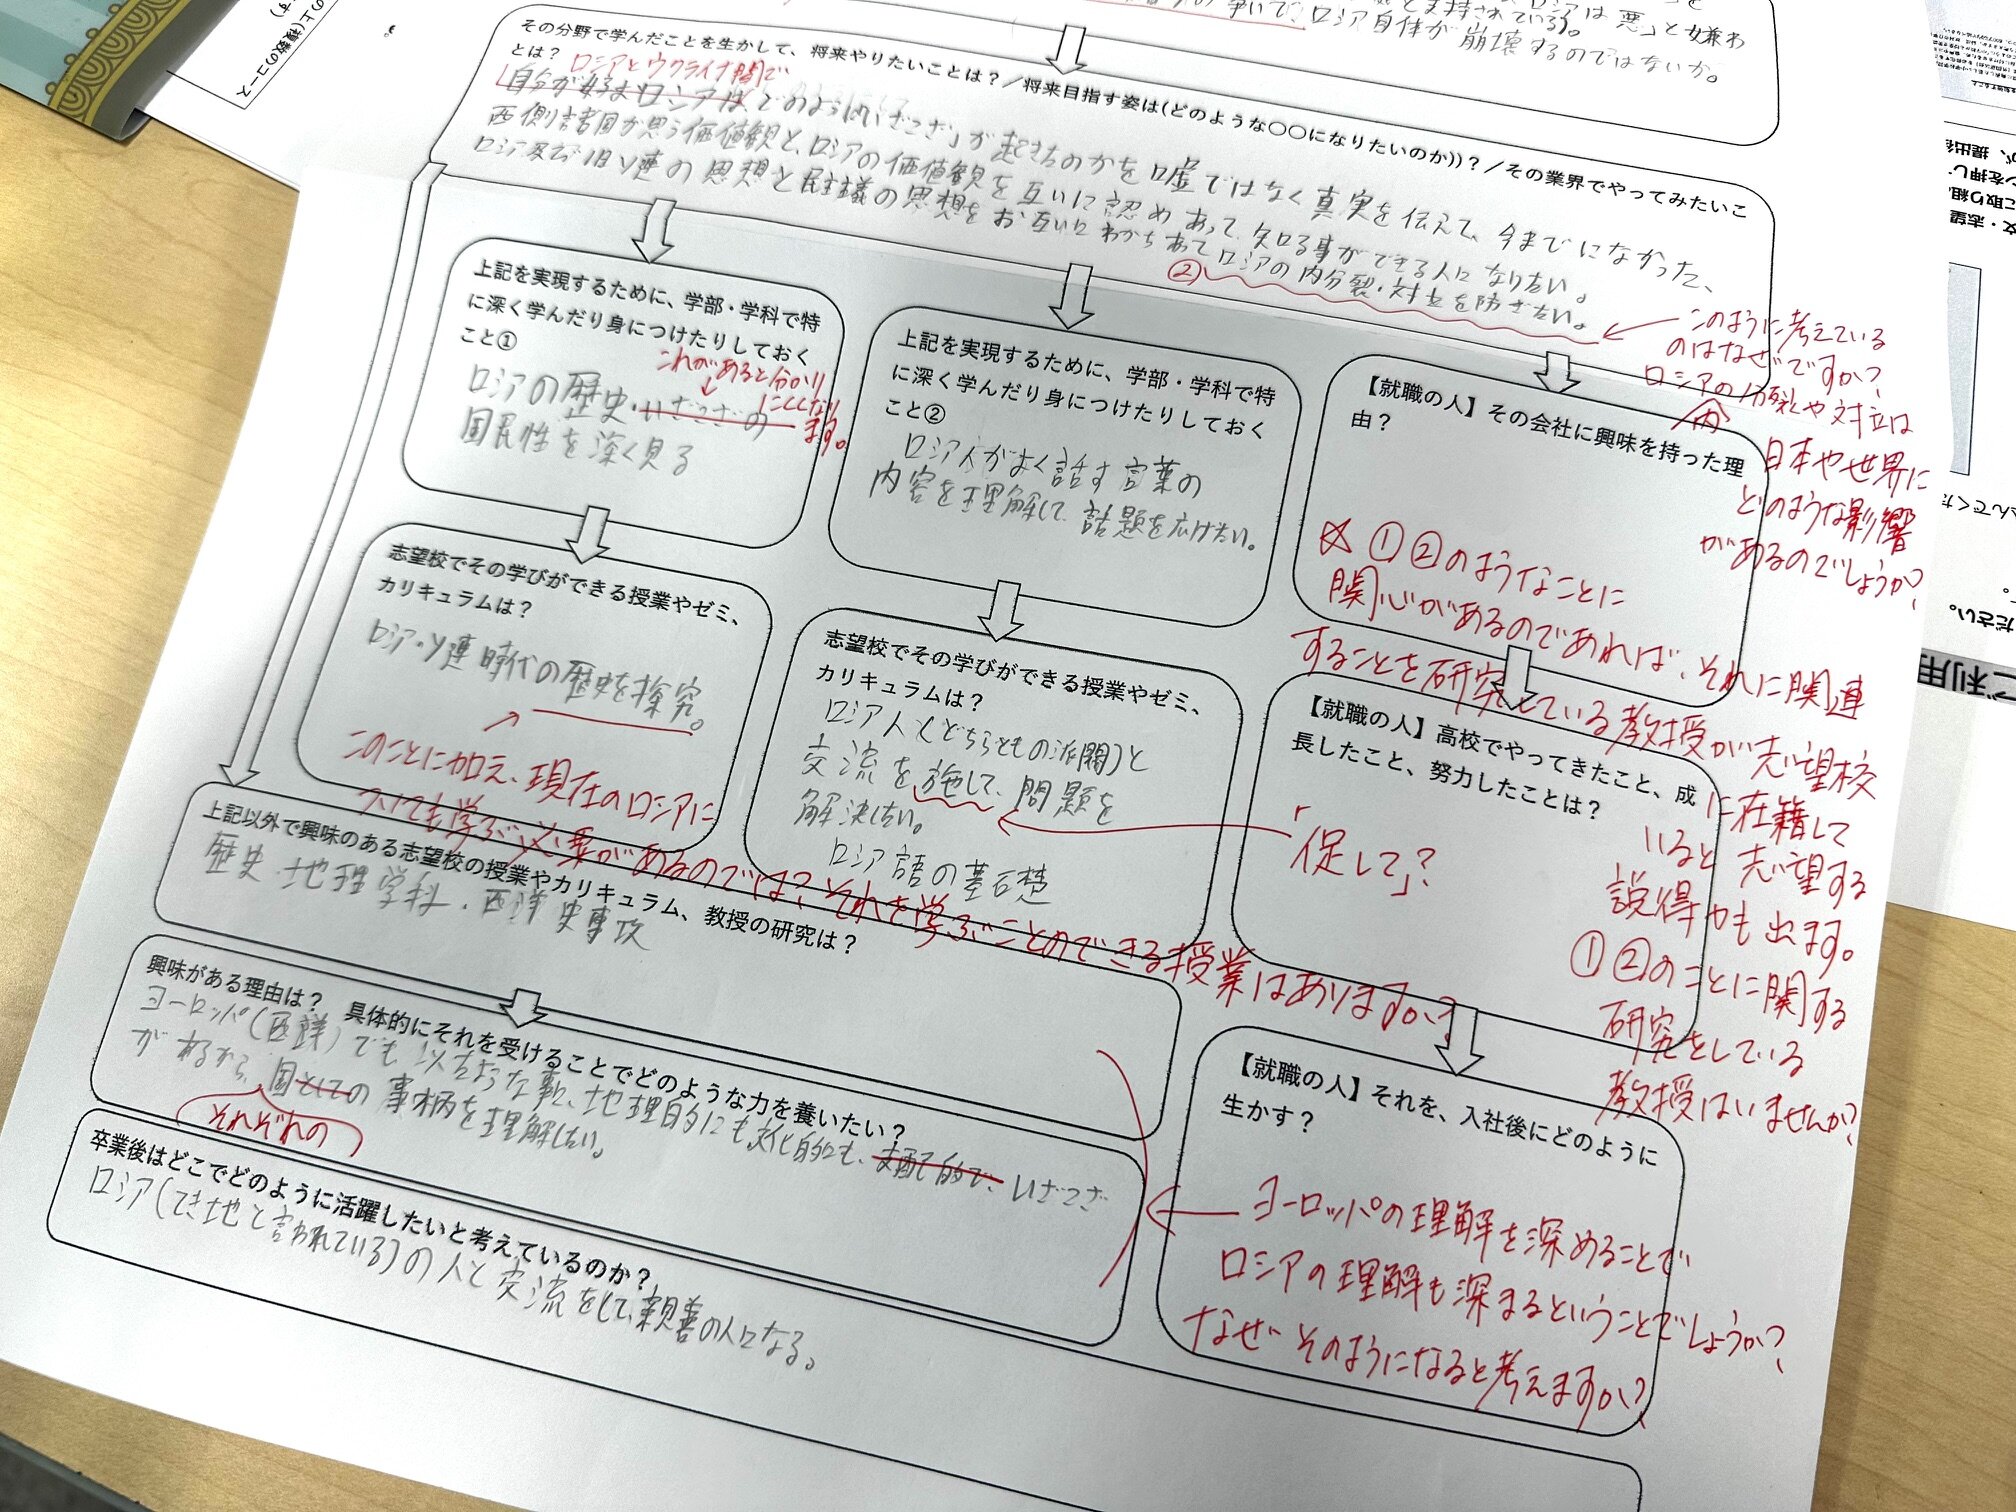 の上(複数のコース
ロシアは悪」と嫌わ
争いで、ロシア自体が崩壊するのではないか。
その分野で学んだことを生かして、将来やりたいことは？／将来目指す姿は(どのような〇〇になりたいのか)）？／その業界でやってみたいこ
とは？
ロシアとウクライナ間で
自分が好きなロシアは どのような「いざこざ」が起きたのかを嘘ではなく真実を伝えて、今までになかった、
西側諸国が思う価値観と、ロシアの価値観を互いに認めあって、知る事ができる人になりたい。
ロシア及び旧ソ連の思想と民主議の思想をお互いにわかちあってロシアの内分裂・対立を防ぎたい。
②
このように考えている
のはなぜですか？
ロシアの分裂や対立は
内
日本や世界に
どのような影響
があるのでしょうか？
上記を実現するために、学部・学科で特
に深く学んだり身につけたりしておく
こと①
これがあると分かり
にくくなり
ます。
ロシアの歴史・いざこざの
国民性を深く見る
上記を実現するために、学部・学科で特
に深く学んだり身につけたりしておく
こと②
ロシア人がよく話す言葉の
内容を理解して、話題を広げたい。
【就職の人】その会社に興味を持った理
由？
①②のようなことに
関心があるのであれば、それに関連
することを研究している教授が志望校
に在籍して
いると志望する
説得力も出ます。
①②のことに関する
研究をしている
教授はいませんか？
志望校でその学びができる授業やゼミ、
カリキュラムは？
ロシア・ソ連時代の歴史を探究。
このことに加え、現在のロシアに
ついても学ぶ必要があるのでは？それを学ぶことのできる授業はありますか？
志望校でその学びができる授業やゼミ、
カリキュラムは？
ロシア人(どちらともの派閥)と
交流を施して、問題を
解決したい。
ロシア語の基礎
「促して」？
【就職の人】高校でやってきたこと、成
長したこと、努力したことは？
上記以外で興味のある志望校の授業やカリキュラム、教授の研究は？
歴史・地理学科・西洋史専攻
興味がある理由は？　具体的にそれを受けることでどのような力を養いたい？
ヨーロッパ(西洋)でも似たような事に、地理的にも、文化的にも、支配的で、いざこざ
があるから、国としての事柄を理解したい。
それぞれの
【就職の人】それを、入社後にどのように
生かす？
ヨーロッパの理解を深めることで
ロシアの理解も深まるということでしょうか？
なぜそのようになると考えますか？
卒業後はどこでどのように活躍したいと考えているのか？
ロシア(てき地と言われている)の人と交流をして、親善の人になる。
ご利用
ださい。